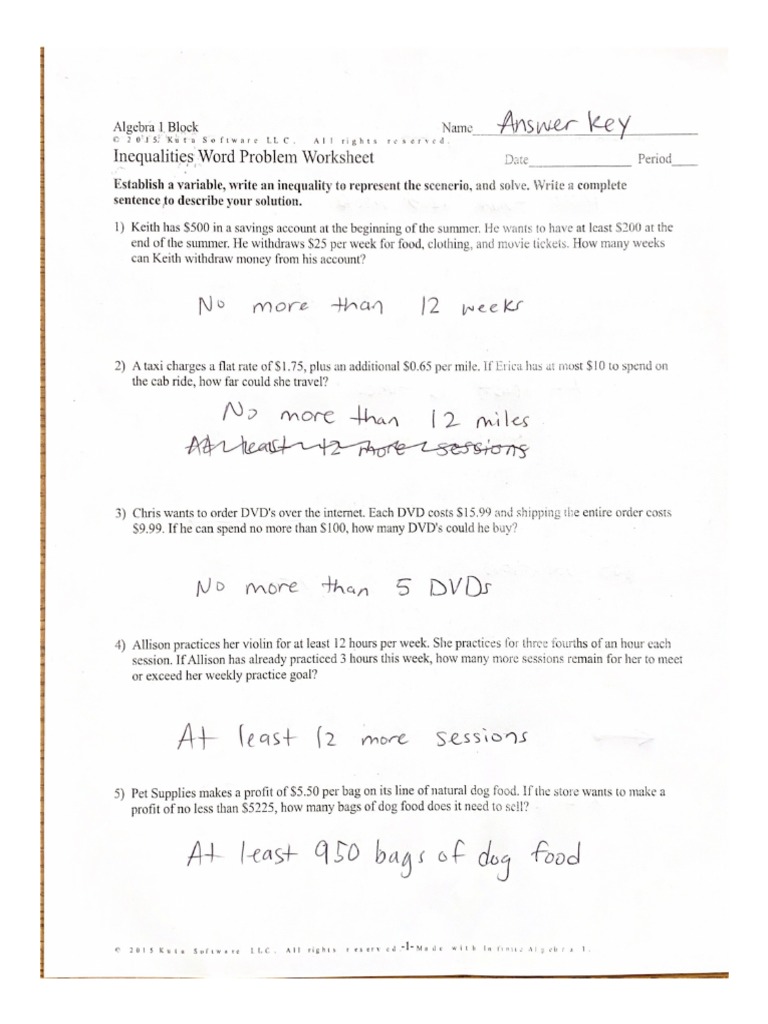 Algebra 1 Block
Name Answer Key
© 2015 Kuta Software LLC. All rights reserved.
Inequalities Word Problem Worksheet
Date Period
Establish a variable, write an inequality to represent the scenerio, and solve. Write a complete
sentence to describe your solution.
1) Keith has $500 in a savings account at the beginning of the summer. He wants to have at least $200 at the
end of the summer. He withdraws $25 per week for food, clothing, and movie tickets. How many weeks
can Keith withdraw money from his account?
No more than 12 weeks
2) A taxi charges a flat rate of $1.75, plus an additional $0.65 per mile. If Erica has at most $10 to spend on
the cab ride, how far could she travel?
No more than 12 miles
At least 12 more sessions
3) Chris wants to order DVD's over the internet. Each DVD costs $15.99 and shipping the entire order costs
$9.99. If he can spend no more than $100, how many DVD's could he buy?
No more than 5 DVDs
4) Allison practices her violin for at least 12 hours per week. She practices for three fourths of an hour each
session. If Allison has already practiced 3 hours this week, how many more sessions remain for her to meet
or exceed her weekly practice goal?
At least 12 more sessions
5) Pet Supplies makes a profit of $5.50 per bag on its line of natural dog food. If the store wants to make a
profit of no less than $5225, how many bags of dog food does it need to sell?
At least 950 bags of dog food
© 2015 Kuta Software LLC. All rights reserved.-1-Made with Infinite Algebra 1.